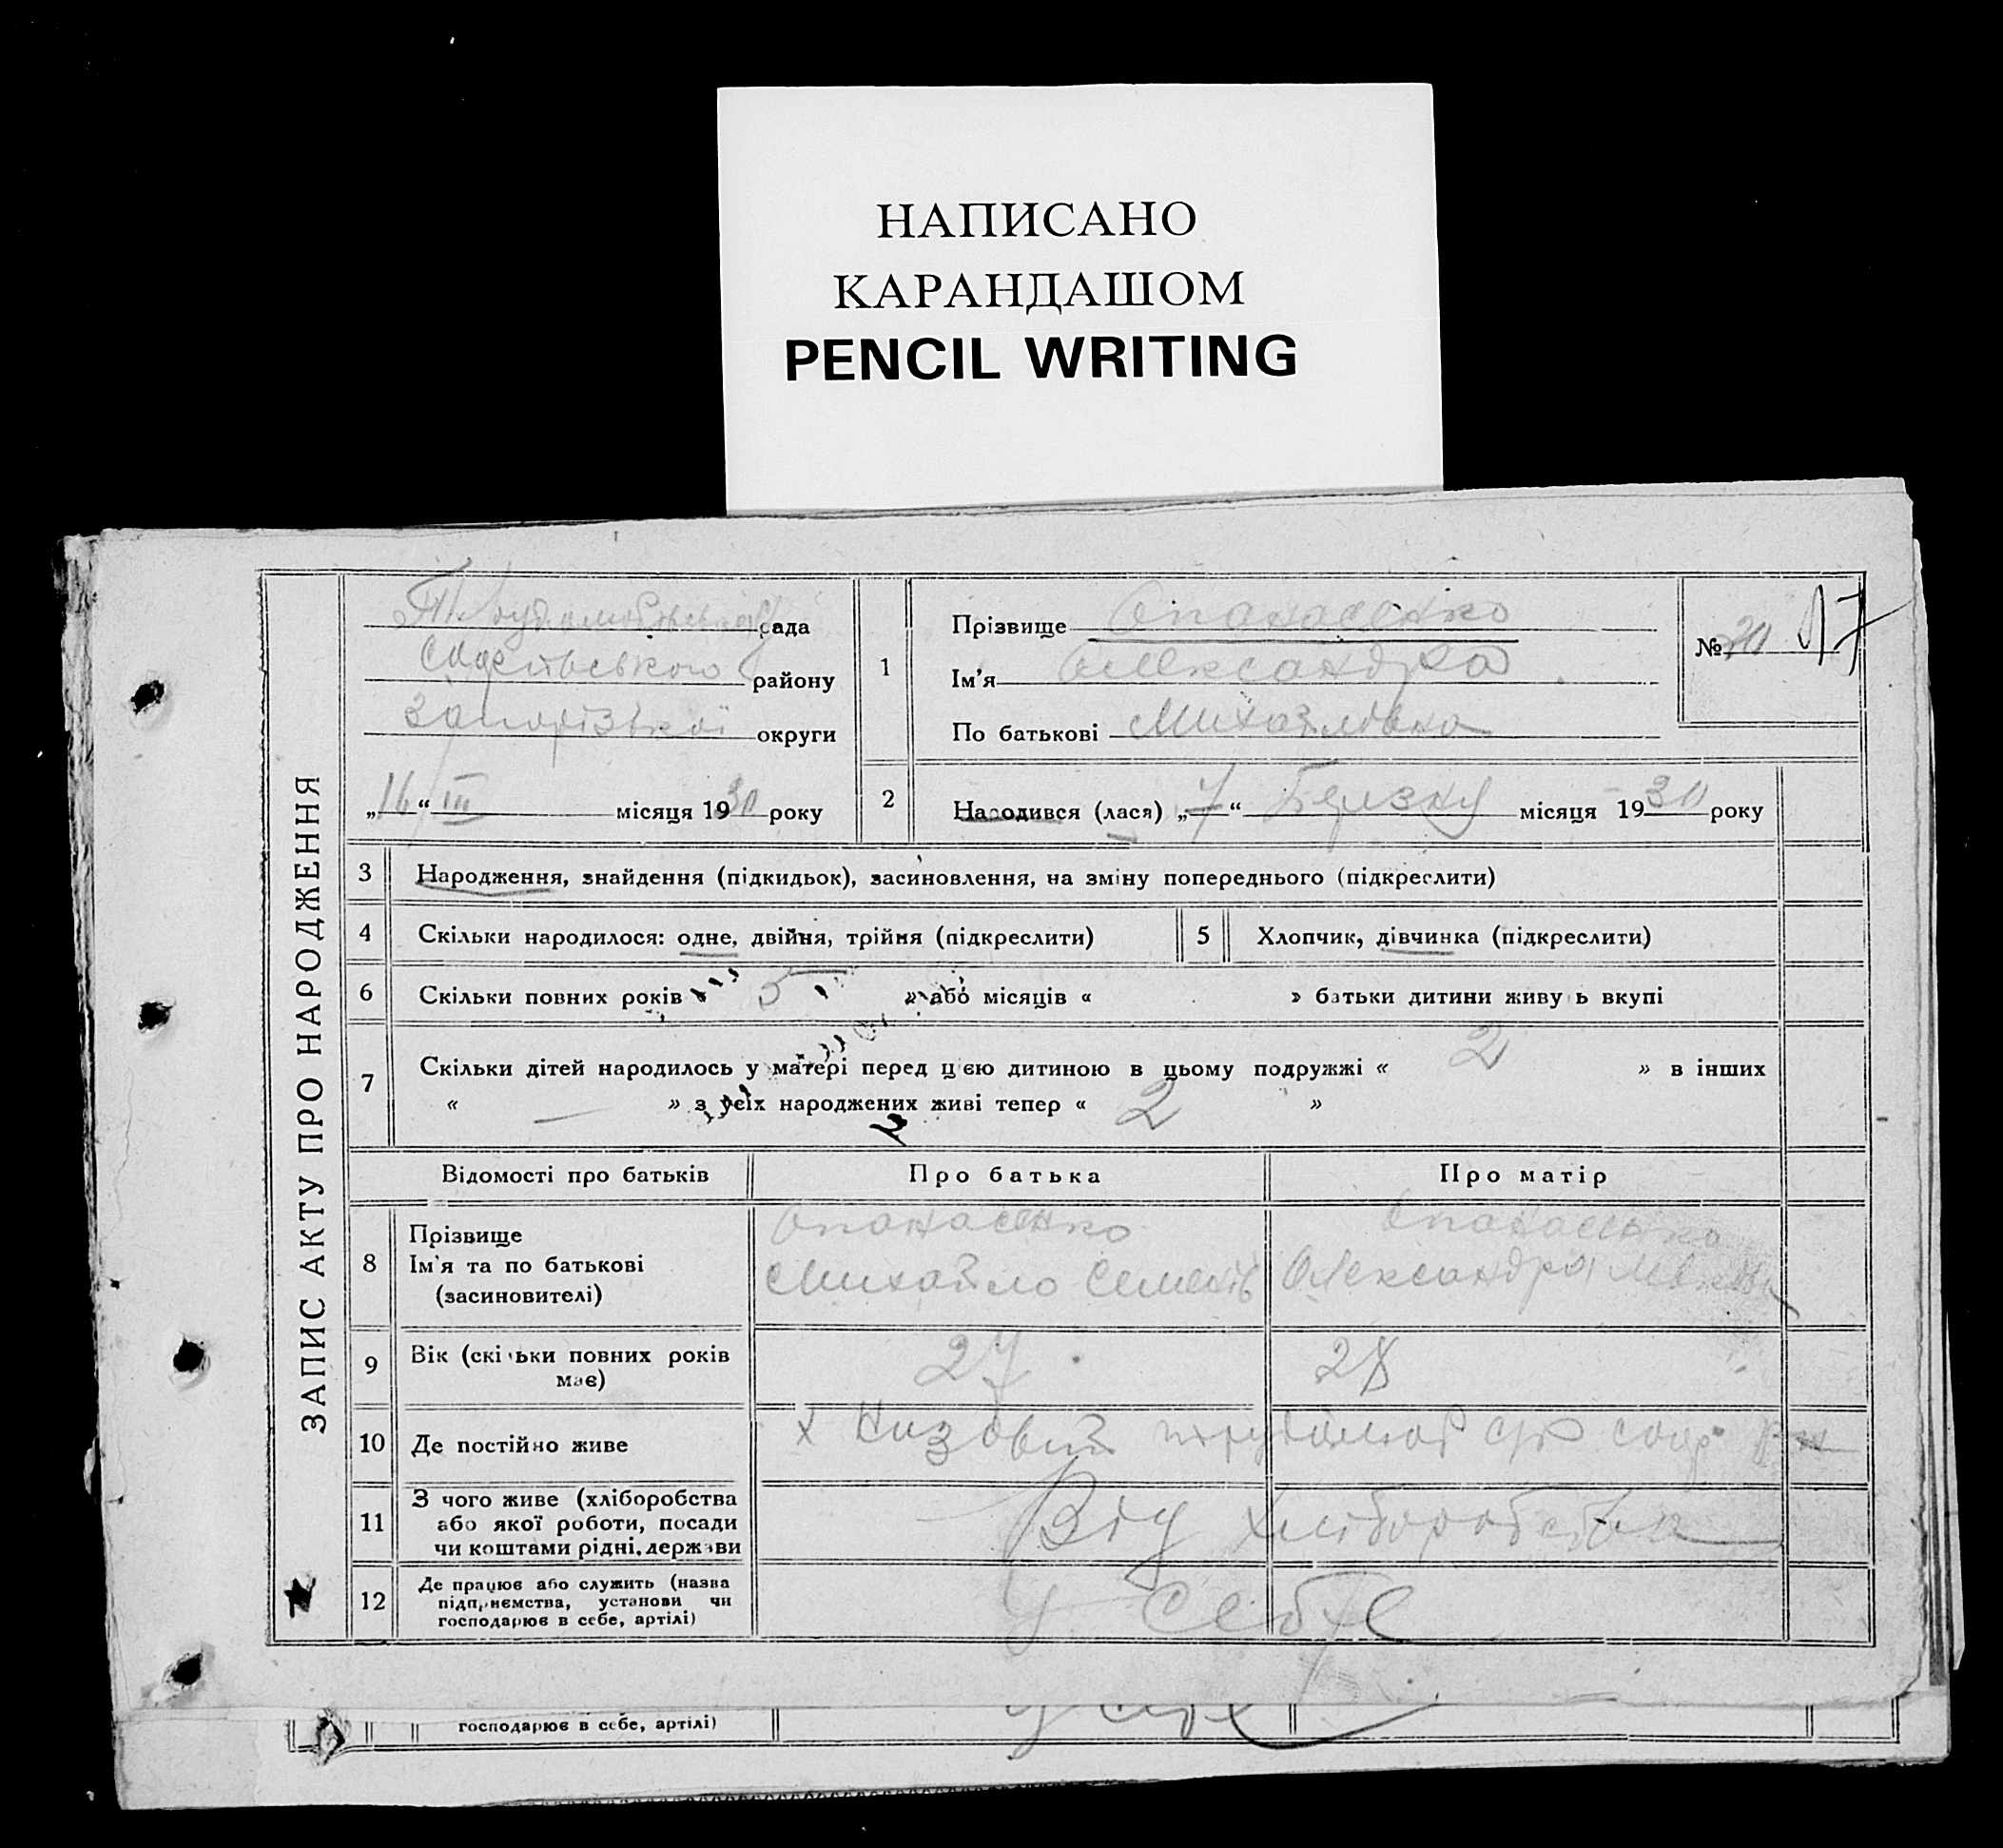 НАПИСАНО
КАРАНДАШОМ
PENCIL WRITING
ЗАПИС АКТУ ПРО НАРОДЖЕННЯ
рада
району
Запорізької округи
„16“ III місяця 1930 року
1
Прізвище Опанасенко
Ім'я Олександра
По батькові Михайлівна
№ 20 17
2
Народився (лася) „7“ Березня місяця 1930 року
3 Народження, знайдення (підкидьок), засиновлення, на зміну попереднього (підкреслити)
4 Скільки народилося: одне, двійня, трійня (підкреслити) 5 Хлопчик, дівчинка (підкреслити)
6 Скільки повних років « 5 » або місяців « » батьки дитини живуть вкупі
7 Скільки дітей народилось у матері перед цією дитиною в цьому подружжі « 2 » в інших
« — » з усіх народжених живі тепер « 2 »
Відомості про батьків Про батька Про матір
8 Прізвище Опанасенко Опанасенко
Ім'я та по батькові Михайло Семенів Олександра
(засиновителі)
9 Вік (скільки повних років 27 28
має)
10 Де постійно живе х Низовий
11 З чого живе (хліборобства
або якої роботи, посади Від хліборобства
чи коштами рідні, держави
12 Де працює або служить (назва
підприємства, установи чи У себе
господарює в себе, артілі)
господарює в себе, артілі) У себе